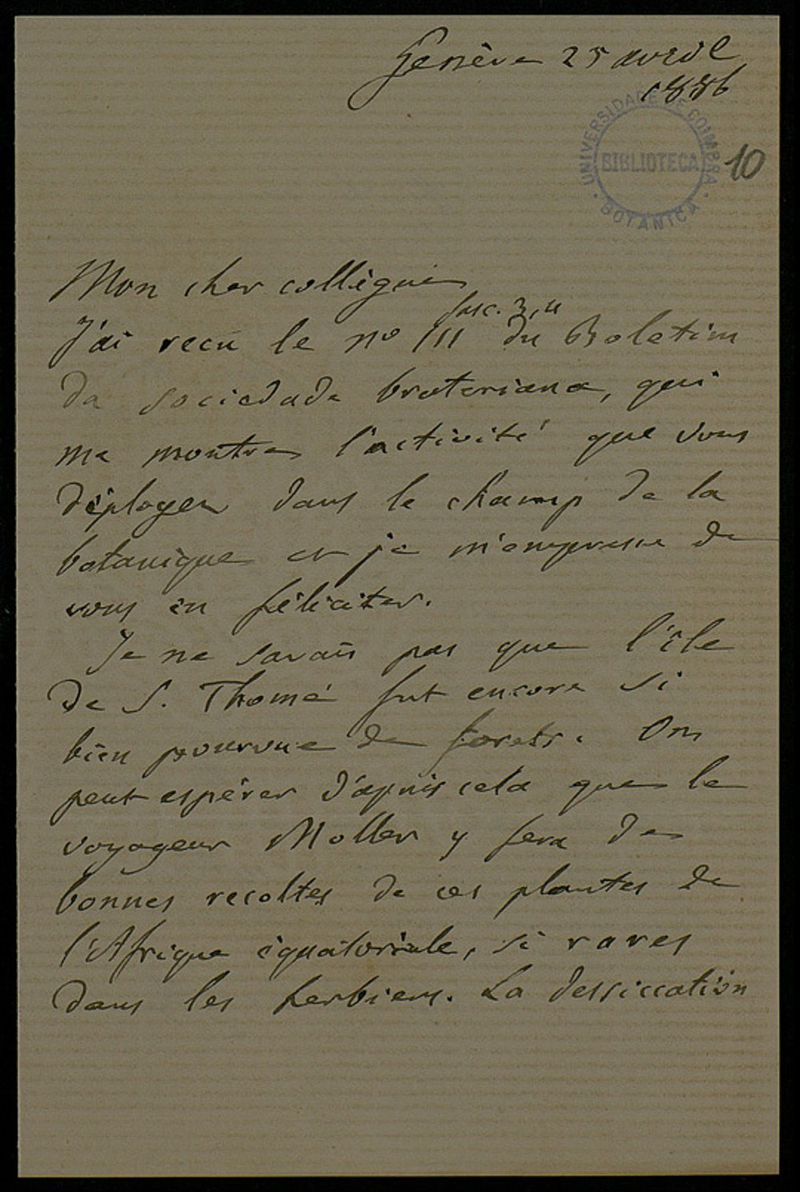 Genève 25 avril
1886
UNIVERSIDADE DE COIMBRA
BIBLIOTECA
BOTANICA
10
Mon cher collègue
fasc. 3, 4
J'ai recu le nº III du Boletim
da sociedade broteriana, qui
me montre l'activité que vous
déployez dans le champ de la
botanique et je m'empresse de
vous en féliciter.
Je ne savais pas que l'île
de S. Thomé fut encore si
bien pourvue de forets. On
peut espérer d'après cela que le
voyageur Moller y fera de
bonnes recoltes de ces plantes de
l'Afrique équatoriale, si rares
dans les herbiers. La dessiccation